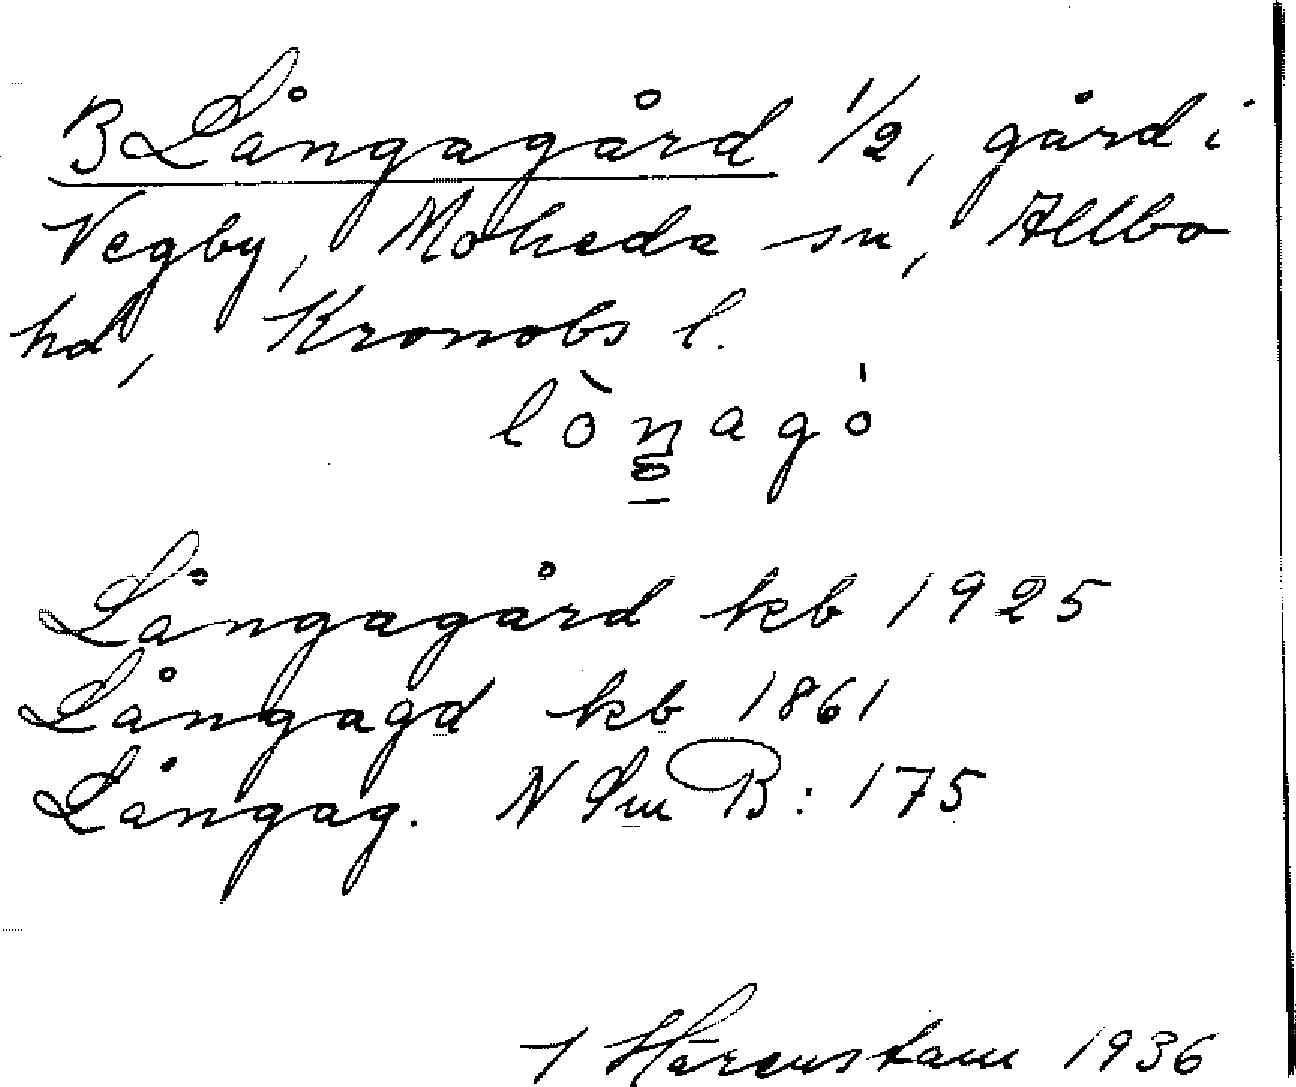 B Långagård 1/2, gård i
Vegby, Moheda sn, Allbo
hd, Kronobs l.
lòn̲agó
Långagård kb 1925
Långagd kb 1861
Långag. N Sm B: 175
1936